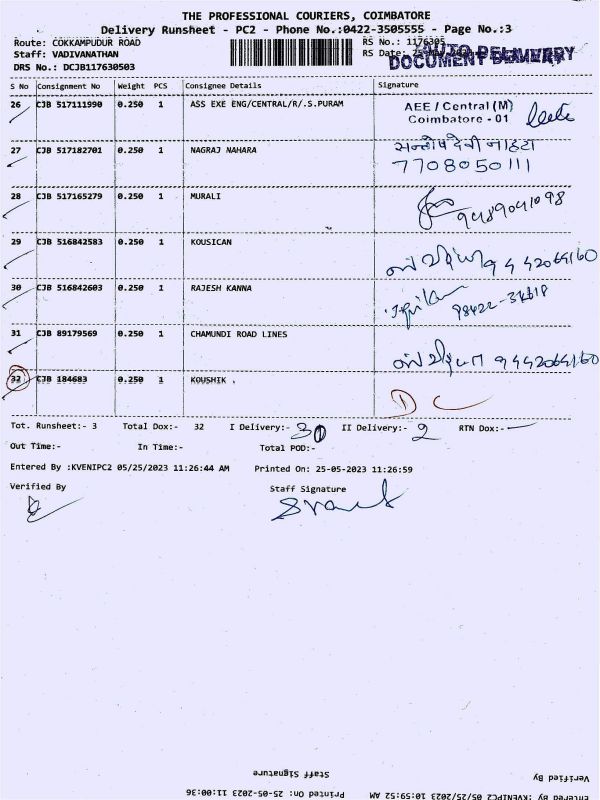 THE PROFESSIONAL COURIERS, COIMBATORE
Delivery Runsheet - PC2 - Phone No.:0422-3505555 - Page No.:3
Route: COKKAMPUDUR ROAD RS No.: 1176305
Staff: VADIVANATHAN RS Date:
DOCUMENT DELIVERY
DRS No.: DCJB117630503
S No Consignment No Weight PCS Consignee Details Signature
26 CJB 517111990 0.250 1 ASS EXE ENG/CENTRAL/R/.S.PURAM AEE / Central (M)
Coimbatore - 01
27 CJB 517182701 0.250 1 NAGRAJ NAHARA
7708050111
28 CJB 517165279 0.250 1 MURALI 9489041098
29 CJB 516842583 0.250 1 KOUSICAN 9442064160
30 CJB 516842603 0.250 1 RAJESH KANNA
31 CJB 89179569 0.250 1 CHAMUNDI ROAD LINES 9442064160
32 CJB 184683 0.250 1 KOUSHIK .
Tot. Runsheet:- 3 Total Dox:- 32 I Delivery:- 30 II Delivery:- 2 RTN Dox:-
Out Time:- In Time:- Total POD:-
Entered By :KVENIPC2 05/25/2023 11:26:44 AM Printed On: 25-05-2023 11:26:59
Verified By Staff Signature
Verified By Staff Signature
Entered By :KVENIPC2 05/25/2023 10:59:52 AM Printed On: 25-05-2023 11:00:36